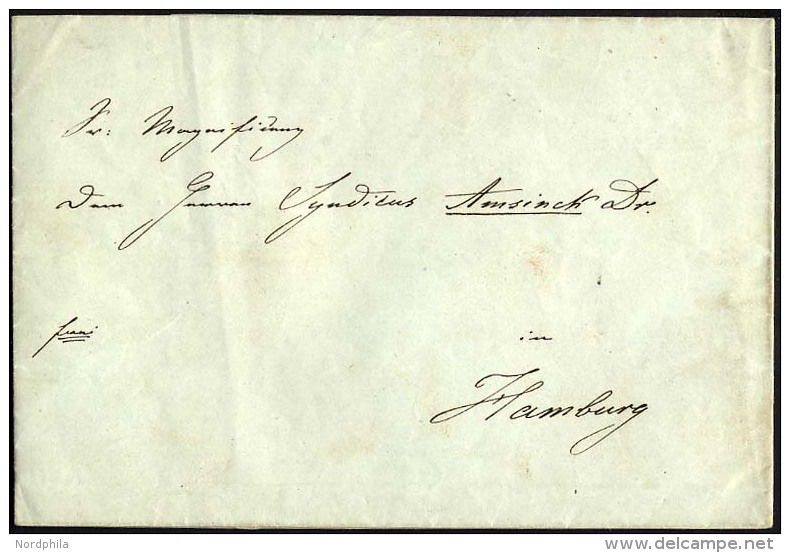 Sr: Magnificenz
Dem Herren Syndicus Amsinck Dr.
in
Hamburg
Nordphila
delcampe.net